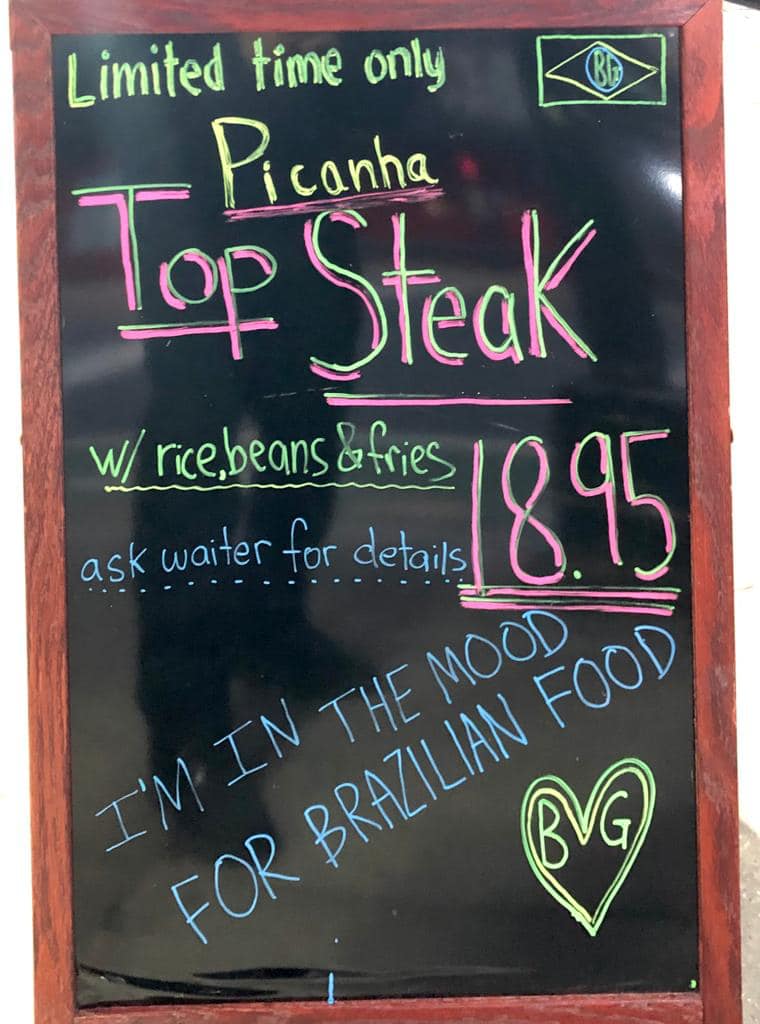 Limited time only
BG
Picanha
Top Steak
w/ rice,beans & fries
18.95
ask waiter for details
I'M IN THE MOOD
FOR BRAZILIAN FOOD
BG